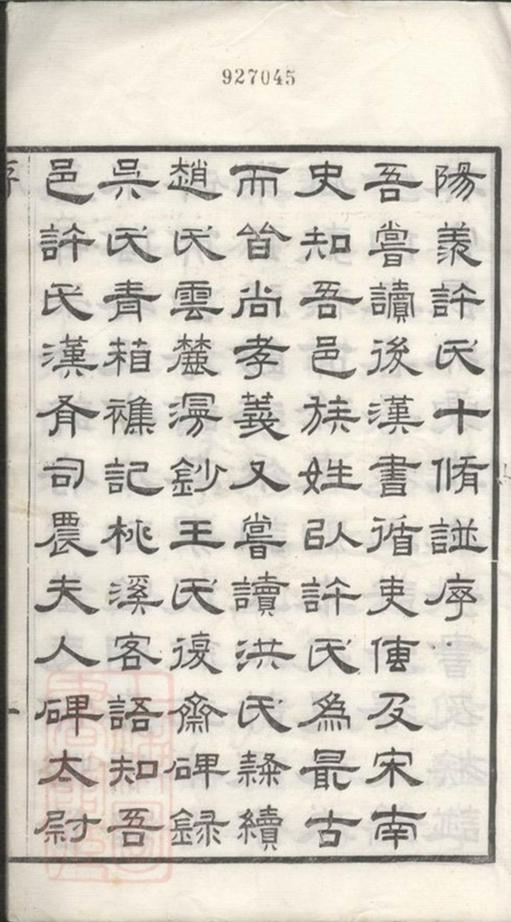 927045
陽羨許氏十脩謚序
吾嘗讀後漢書循吏傳及宋南
史知吾邑族姓以許氏為最古
而皆尚孝義又嘗讀洪氏隸續
趙氏雲麓漫鈔王氏復齋碑録
吳氏青箱襍記桃溪客語知吾
邑許氏漢有司農夫人碑太尉
序
一